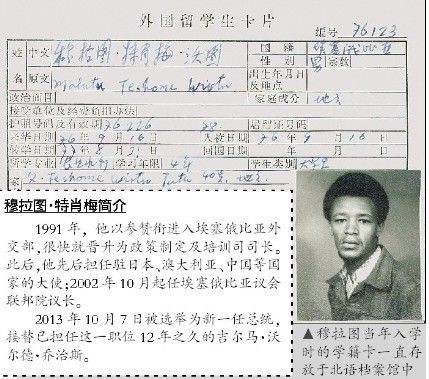 外国留学生卡片
编号 76123
姓 中文 穆拉图·特肖梅·沃图 国籍 埃塞俄比亚
性别 男 宗教
名 原文 Mulatu Teshome Wirtu 出生年月日及地点
政治面目 家庭成分 地主
护照号码及有效期
入校日期 76年9月16日
回国日期 年 月 日
所学专业 学习年限 4年 学生类别 大学生
父 Teshome Wirtu
穆拉图·特肖梅简介
1991年，他以参赞衔进入埃塞俄比亚外
交部，很快就晋升为政策制定及培训司司长。
此后，他先后担任驻日本、澳大利亚、中国等国
家的大使；2002年10月起任埃塞俄比亚议会
联邦院议长。
2013年10月7日被选举为新一任总统，
接替已担任这一职位12年之久的吉尔马·沃
尔德·乔治斯。
▲穆拉图当年入学
时的学籍卡一直存
放于北语档案馆中